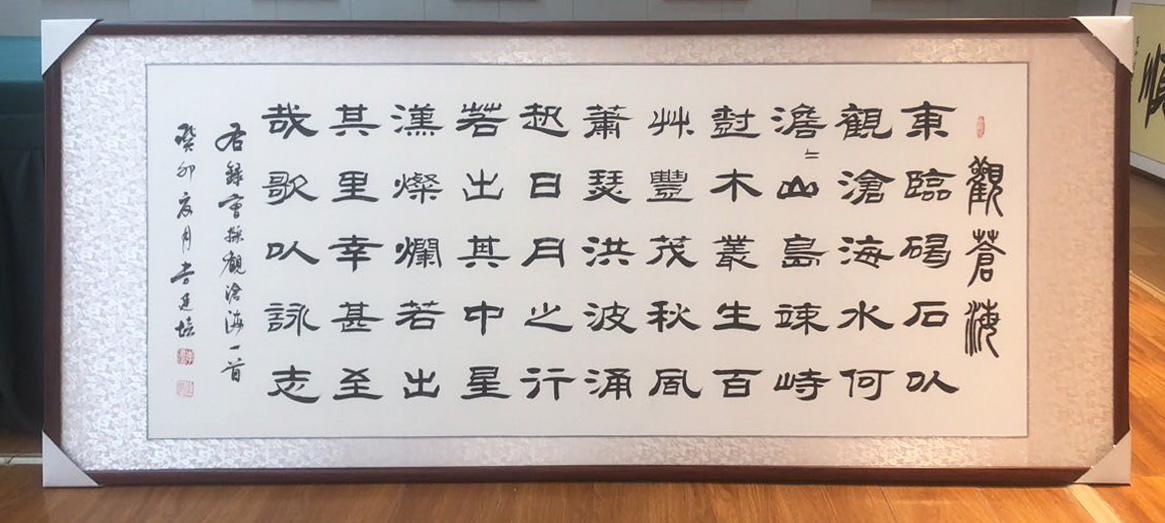 觀蒼海
東臨碣石以
觀滄海水何
澹〻山島竦峙
尌木叢生百
艸豐茂秋凬
蕭瑟洪波涌
起日月之行
若出其中星
漢燦爛若出
其里幸甚至
哉歌以詠志
右錄曹操觀滄海一首
癸卯夏月廷培
順